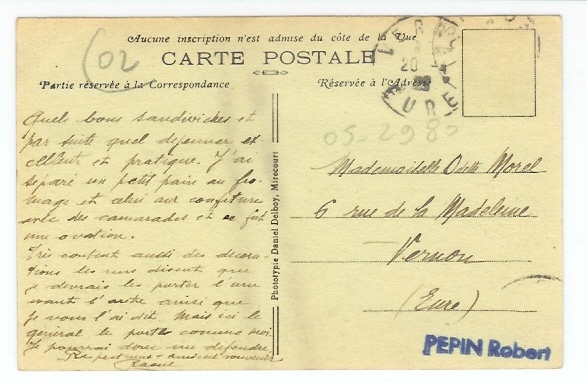 Aucune inscription n'est admise du côté de la Vue
CARTE POSTALE
Partie réservée à la Correspondance
Réservée à l'Adresse
02
05-2980
Quel bons sandwiches et
par suite quel dejeuner ex
cellent et pratique. J'ai
séparé un petit pain au fro-
mage et celui aux confitures
avec des camarades et ce fut
une ovation.
Très content aussi des décora-
tions les uns disent que
je devrais les porter l'une
avant l'autre ainsi que
je vous l'ai dit. Mais ici le
général le porte comme moi.
Je pourrai donc me défendre.
Respectueux & amical souvenir
Phototypie Daniel Delboy, Mirecourt
Mademoiselle Odette Morel
6 rue de la Madeleine
Vernon
(Eure)
PEPIN Robert